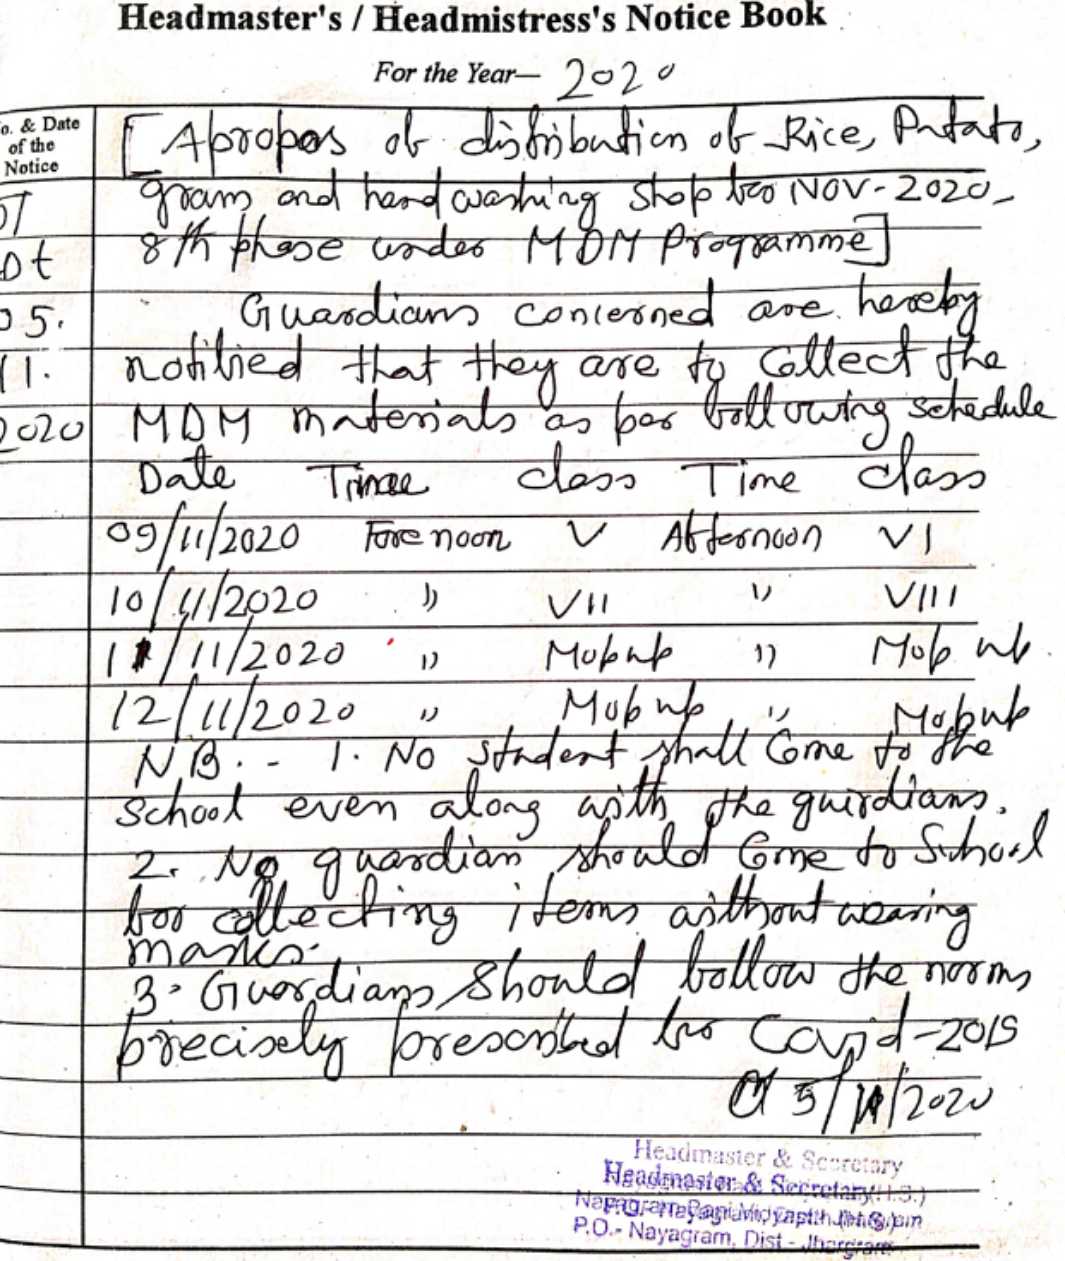 Headmaster's / Headmistress's Notice Book
For the Year— 2020
o. & Date
of the
Notice
Dt
05.
11.
2020
[Apropos of distribution of Rice, Potato,
gram and hand washing shop for NOV-2020-
8th phase under MDM Programme]
Guardians concerned are hereby
notified that they are to collect the
MDM materials as per following schedule
Date Time class Time class
09/11/2020 Forenoon V Afternoon VI
10/11/2020 " VII " VIII
11/11/2020 " Mop up " Mop up.
12/11/2020 " Mop up " Mop up
N.B. - 1. No student shall come to the
school even along with the guirdians.
2. No guardian should come to School
for collecting items without wearing
masks.
3. Guardians should follow the norms
precisely prescribed for Covid-2019
5/11/2020
Headmaster & Secretary
Headmaster & Secretary (H.S.)
P.O.- Nayagram, Dist - Jhargram